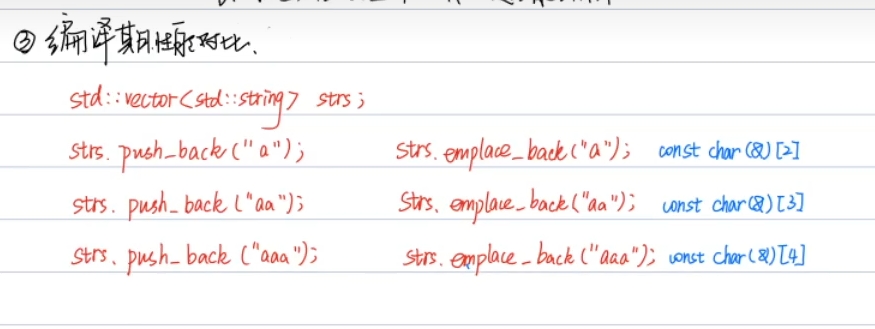 ③ 编译期性能对比、
std::vector<std::string> strs;
strs. push_back("a"); strs. emplace_back("a"); const char(&)[2]
strs. push_back("aa"); strs. emplace_back("aa"); const char(&)[3]
strs. push_back("aaa"); strs. emplace_back("aaa"); const char(&)[4]